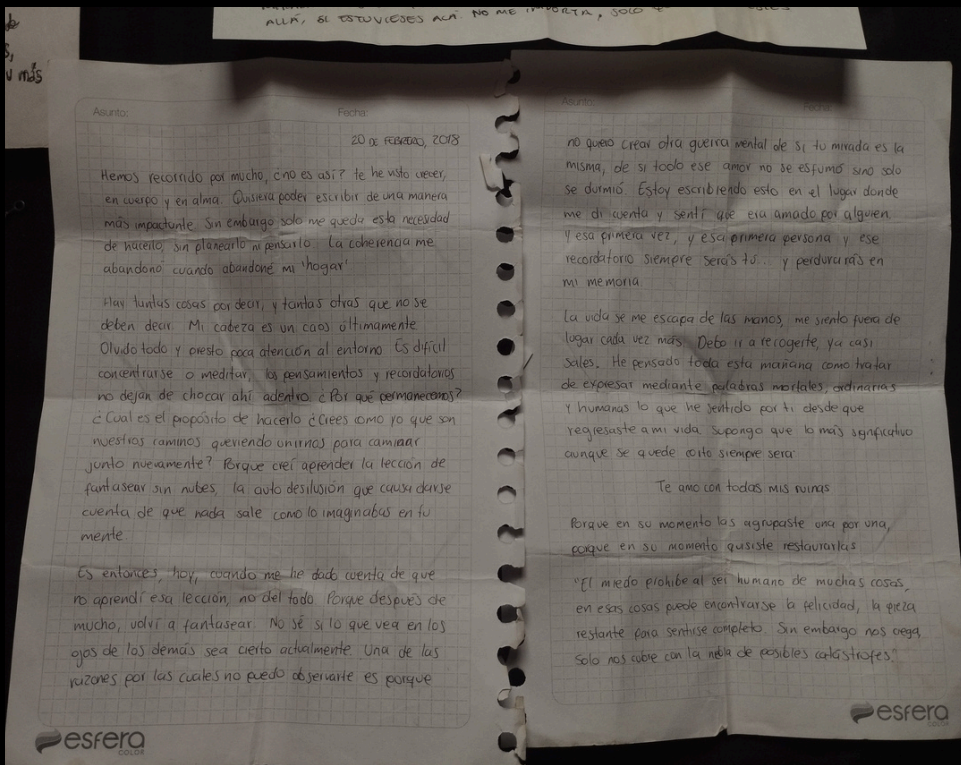 ALLÁ, SI ESTUVIESES ACÁ. NO ME IMPORTA, SOLO
u más
Asunto:
Fecha:
20 DE FEBRERO, 2018
Hemos recorrido por mucho, ¿no es así? te he visto crecer,
en cuerpo y en alma. Quisiera poder escribir de una manera
más impactante. Sin embargo solo me queda esta necesidad
de hacerlo, sin planearlo ni pensarlo. La coherencia me
abandonó cuando abandoné mi 'hogar'
Hay tantas cosas por decir, y tantas otras que no se
deben decir. Mi cabeza es un caos últimamente
Olvido todo y presto poca atención al entorno. Es difícil
concentrarse o meditar, los pensamientos y recordatorios
no dejan de chocar ahí adentro. ¿Por qué permanecemos?
¿Cual es el propósito de hacerlo ¿Crees como yo que son
nuestros caminos queriendo unirnos para caminar
junto nuevamente? Porque creí aprender la lección de
fantasear sin nubes, la auto desilusión que causa darse
cuenta de que nada sale como lo imaginabas en tu
mente.
Es entonces, hoy, cuando me he dado cuenta de que
no aprendí esa lección, no del todo. Porque después de
mucho, volví a fantasear. No sé si lo que vea en los
ojos de los demás sea cierto actualmente. Una de las
razones por las cuales no puedo observarte es porque
esfera
COLOR
Asunto:
Fecha:
no quiero crear otra guerra mental de si tu mirada es la
misma, de si todo ese amor no se esfumó sino solo
se durmió. Estoy escribiendo esto en el lugar donde
me di cuenta y sentí que era amado por alguien.
Y esa primera vez, y esa primera persona y ese
recordatorio siempre serás tú... y perdurarás en
mi memoria.
La vida se me escapa de las manos, me siento fuera de
lugar cada vez más. Debo ir a recogerte, ya casi
sales. He pensado toda esta mañana como tratar
de expresar mediante palabras mortales, ordinarias
y humanas lo que he sentido por ti desde que
regresaste a mi vida. Supongo que lo más significativo
aunque se quede corto siempre será:
Te amo con todas mis ruinas
Porque en su momento las agrupaste una por una,
porque en su momento quisiste restaurarlas
"El miedo prohíbe al ser humano de muchas cosas,
en esas cosas puede encontrarse la felicidad, la pieza
restante para sentirse completo. Sin embargo nos ciega,
solo nos cubre con la niebla de posibles catástrofes."
esfera
COLOR